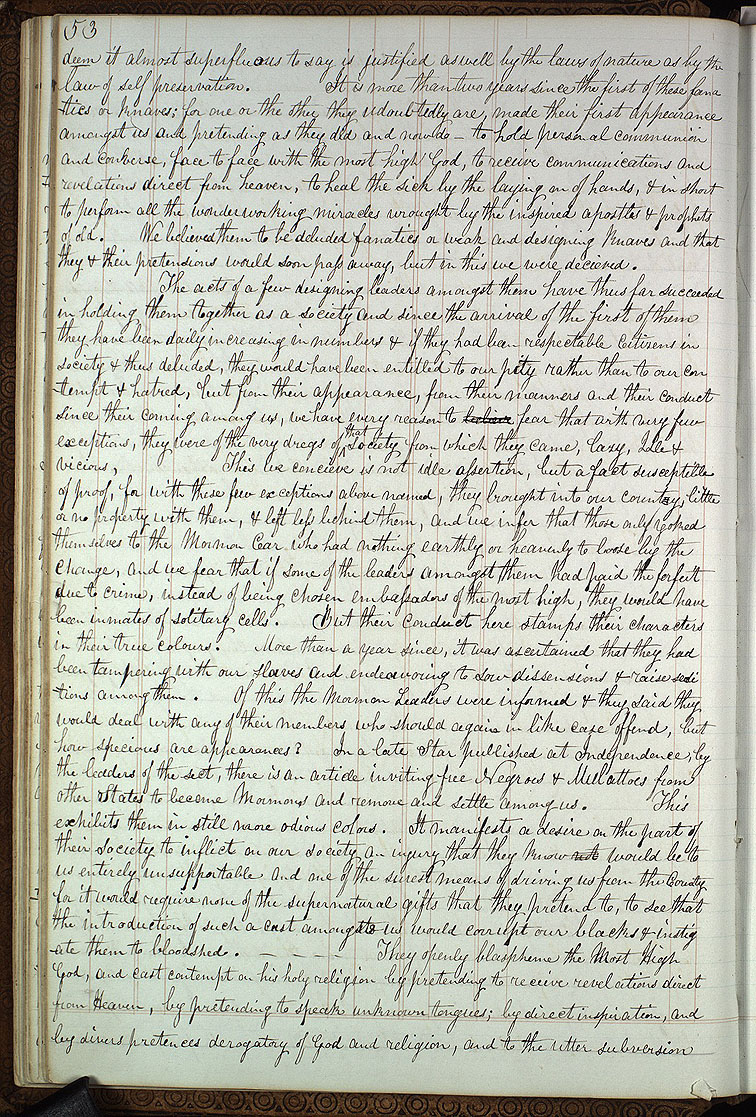 53
deem it almost superfluous to say is justified as well by the laws of nature as by the
law of self preservation. It is more than two years since the first of these fana
tics or knaves; for one or the other they udoubtedly are, made their first appearance
amongst us and pretending as they did and now do - to hold personal communion
and converse, face to face with the most high God, to receive communications and
revelations direct from heaven, to heal the sick by the laying on of hands, & in short
to perform all the wonder working miracles wrought by the inspired apostles & prophets
of old. We believed them to be deluded fanatics or weak and designing knaves and that
they & their pretensions would soon pass away, but in this we were decieved.
The acts of a few designing leaders amongst them have thus far succeeded
in holding them together as a society and since the arrival of the first of them
they have been daily increasing in numbers & if they had been respectable citizens in
society & thus deluded, they would have been entitled to our pity rather than to our con
tempt & hatred, but from their appearance, from their manners and their conduct
since their coming among us, we have every reason to believe fear that with very few
exceptions, they were of the very dregs of that society from which they came, lazy, Idle &
vicious, This we concieve is not idle assertion, but a fact susceptible
of proof, for with these few exceptions above named, they brought into our county, little
or no property with them, & left less behind them, and we infer that those only yoked
themselves to the Mormon Car who had nothing earthly or heavenly to loose by the
change, and we fear that if some of the leaders amongst them had paid the forfeit
due to crime, instead of being chosen embassadors of the most high, they would have
been inmates of solitary cells. But their conduct here stamps their characters
in their true colours. More than a year since, it was ascertained that they had
been tampering with our slaves and endeavoring to sow dissensions & raise sedi
tions among them. Of this the Mormon Leaders were informed & they said they
would deal with any of their members who should again in like case offend, but
how specious are appearances? In a late Star published at Independence, by
the leaders of the sect, there is an article inviting free Negroes & Mulattoes from
other States to become Mormons and remove and settle among us. This
exhibits them in still more odious colors. It manifests a desire on the part of
their society to inflict on our society an injury that they know not would be to
us entirely unsupportable and one of the surest means of driving us from the County,
for it would require none of the supernatural gifts that they pretend to, to see that
the introduction of such a cast amongst us would corrupt our blacks & instig
ate them to bloodshed. - - - - - They openly blaspheme the Most High
God, and cast contempt on his holy religion by pretending to receive revelations direct
from Heaven, by pretending to speak unknown tongues; by direct inspiration, and
by divers pretences derogatory of God and religion, and to the utter subversion